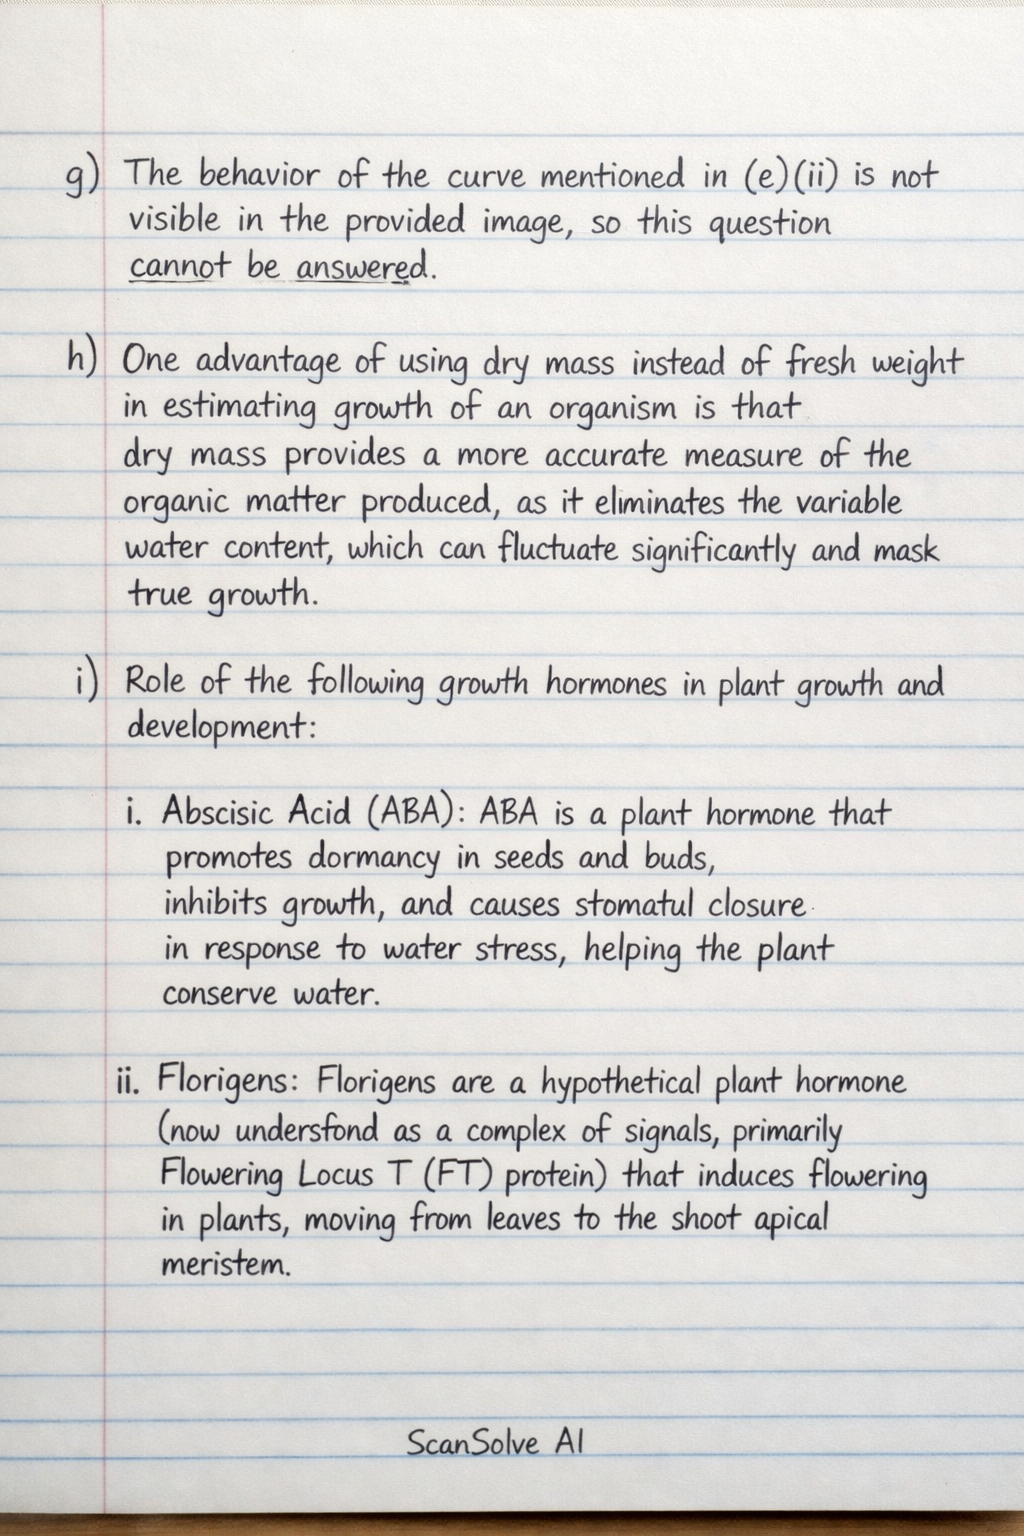 g) The behavior of the curve mentioned in (e)(ii) is not
visible in the provided image, so this question
cannot be answered.
h) One advantage of using dry mass instead of fresh weight
in estimating growth of an organism is that
dry mass provides a more accurate measure of the
organic matter produced, as it eliminates the variable
water content, which can fluctuate significantly and mask
true growth.
i) Role of the following growth hormones in plant growth and
development:
i. Abscisic Acid (ABA): ABA is a plant hormone that
promotes dormancy in seeds and buds,
inhibits growth, and causes stomatul closure
in response to water stress, helping the plant
conserve water.
ii. Florigens: Florigens are a hypothetical plant hormone
(now undersfond as a complex of signals, primarily
Flowering Locus T (FT) protein) that induces flowering
in plants, moving from leaves to the shoot apical
meristem.
ScanSolve AI